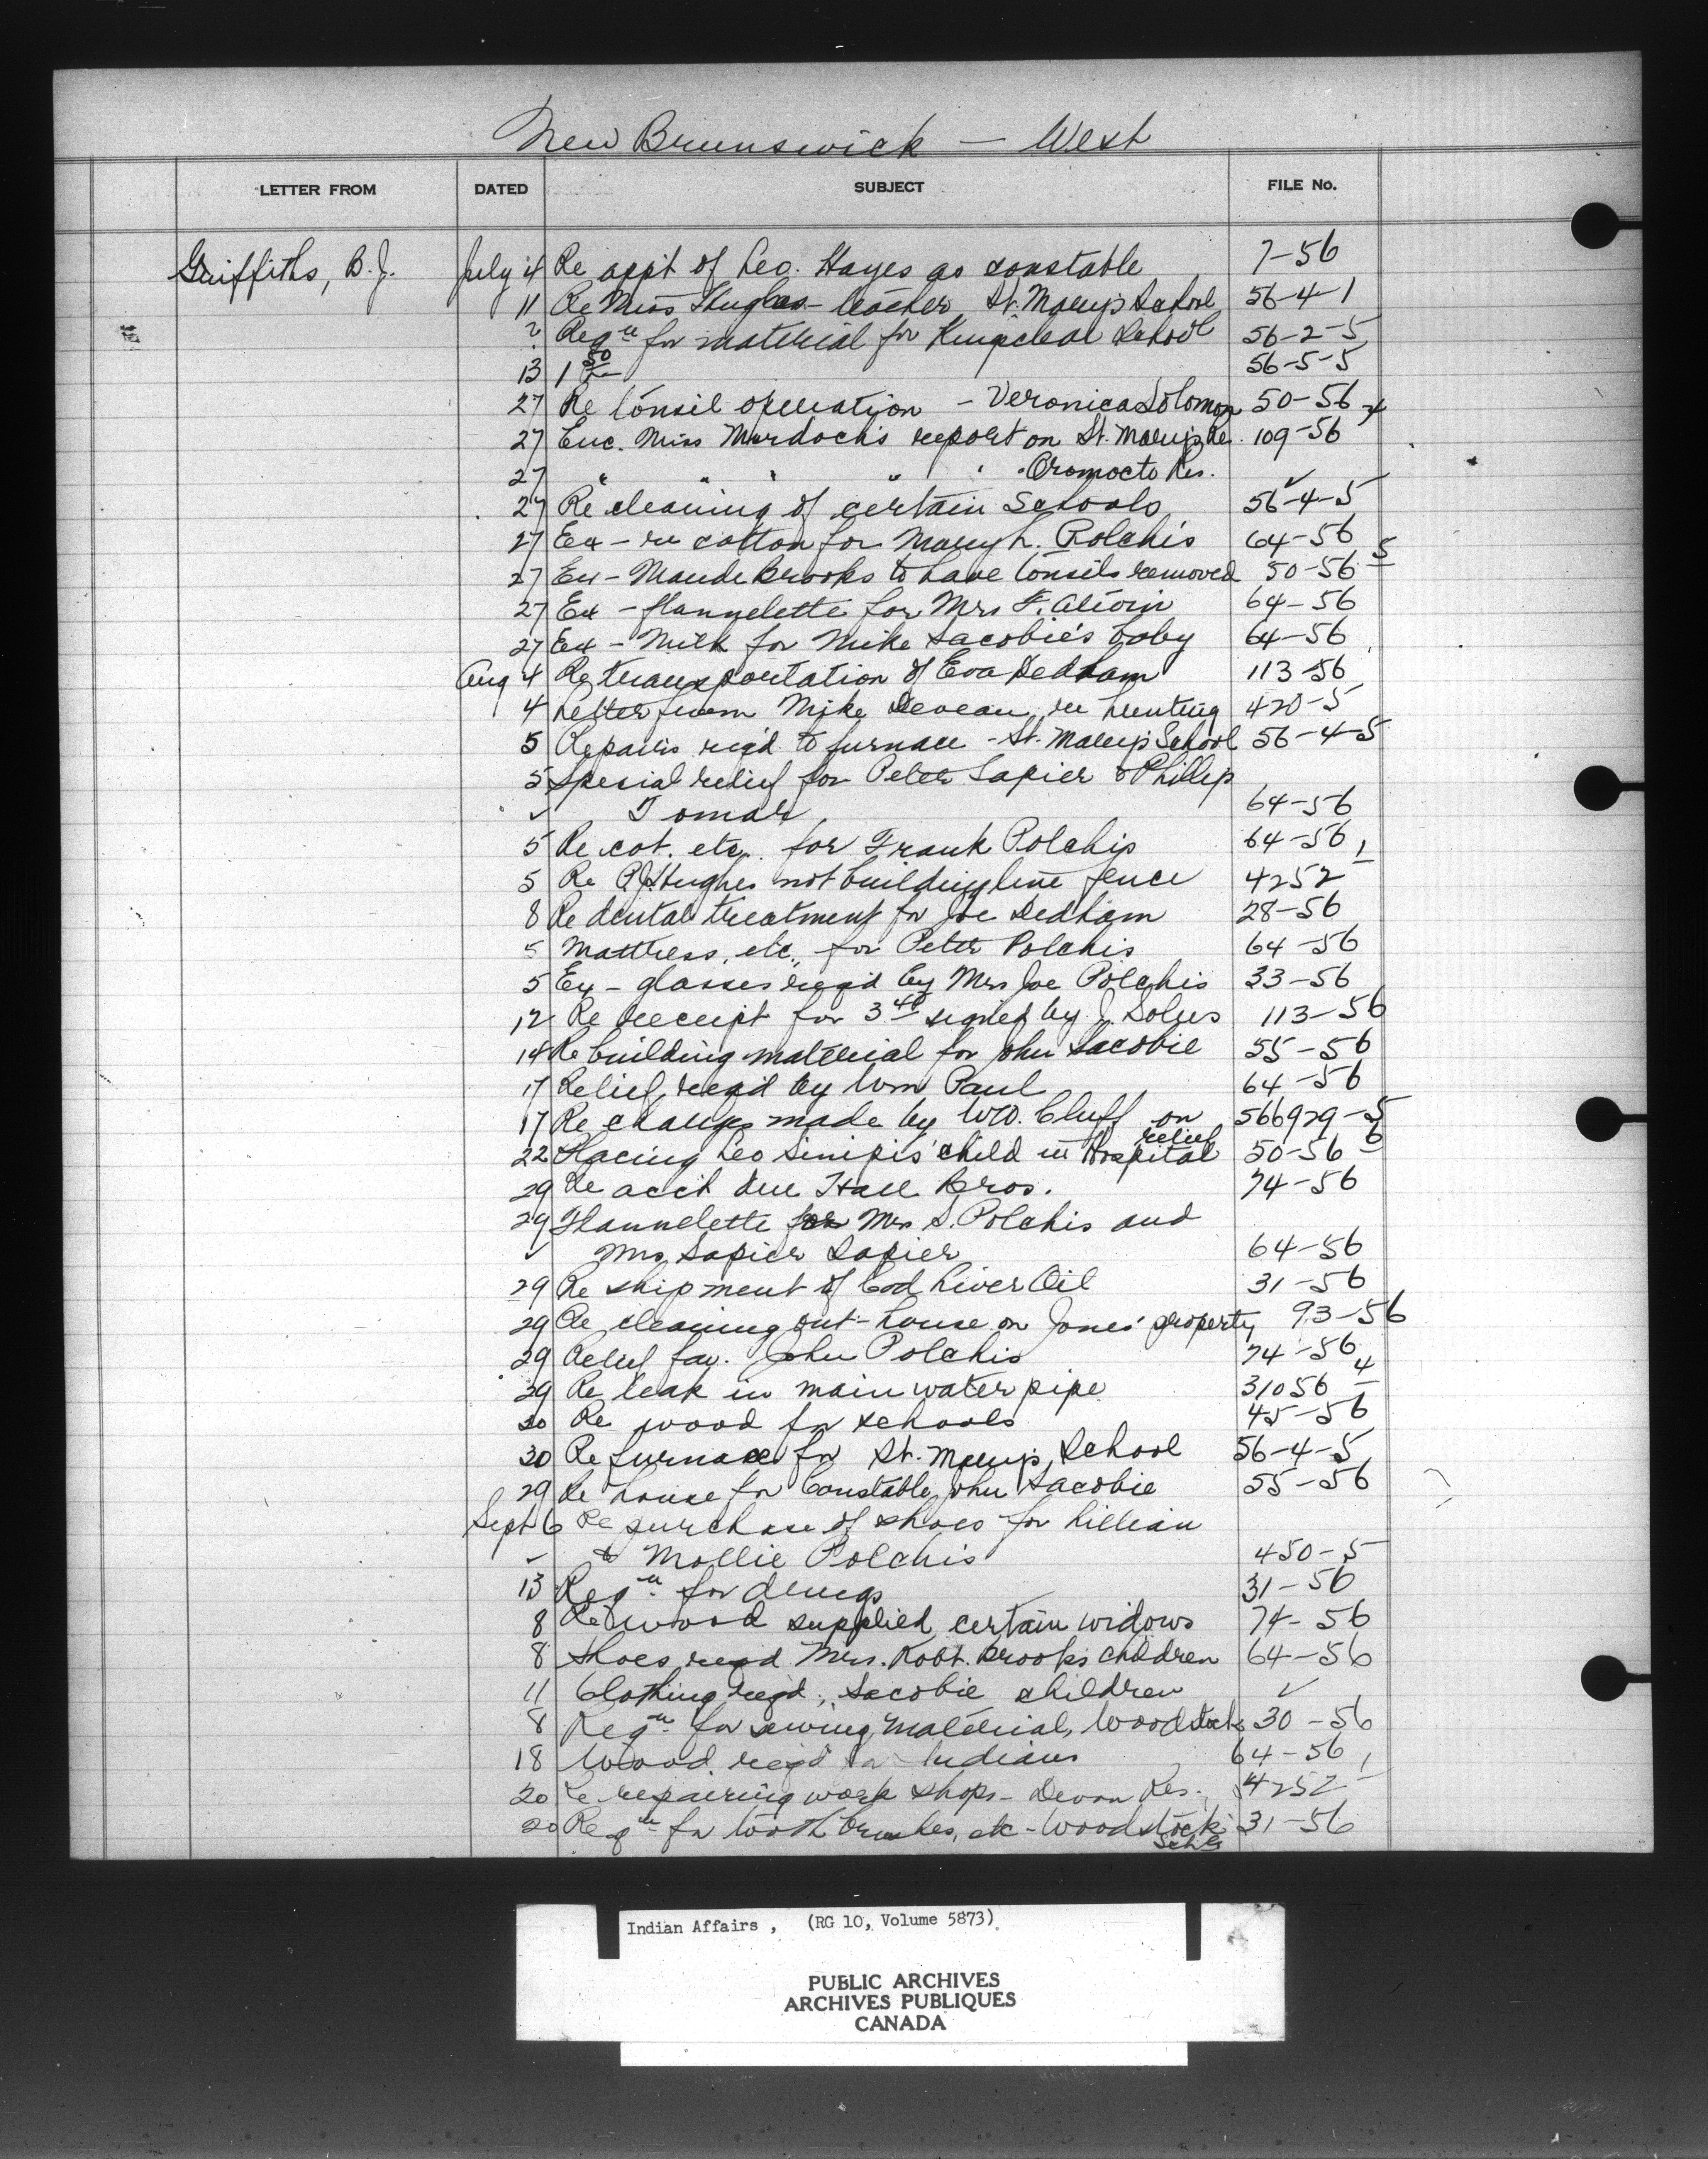 New Brunswick — West
LETTER FROM DATED SUBJECT FILE No.
Griffiths, B.J. July 4 Re appt of Leo. Hayes as constable 7-56
11 Re Miss Hughes - teacher St. Mary's School 56-4-1
? Reqn for material for Kingsclear School 56-2-5
13 1 50 56-5-5
27 Re tonsil operation - Veronica Solomon 50-56-4
27 Enc. Miss Murdoch's report on St. Mary's Res. 109-56
27 " " " " " Oromocto Res. ✓
27 Re cleaning of certain Schools 56-4-5
27 Ex - re cotton for Mary L. Polchis 64-56
27 Ex - Maude Brooks to have tonsils removed 50-56-5
27 Ex - flannelette for Mrs F. Atwin 64-56
27 Ex - Milk for Mike Sacobie's baby 64-56
Aug 4 Re transportation of Eva Dedham 113-56
4 Letter from Mike Deveau re hunting 420-5
5 Repairs req'd to furnace - St. Mary's School 56-4-5
5 Special relief for Peter Sapier & Phillip
✓ Tomah 64-56
5 Re cot. etc. for Frank Polchis 64-56
5 Re P.J. Hughes not building line fence 4252-1
8 Re dental treatment for Joe Dedham 28-56
5 Mattress, etc., for Peter Polchis 64-56
5 Ex - glasses req'd by Mrs Joe Polchis 33-56
12 Re receipt for 3 40 signed by J. Soles 113-56
14 Re building material for John Sacobie 55-56
17 Relief req'd by Wm Paul 64-56
17 Re change made by W.O. Cluff on relief 566929-5
22 Placing Leo Sinipis' child in Hospital 50-56-6
29 Re acct due Hall Bros. 74-56
29 Flannelette for Mrs S. Polchis and
✓ Mrs. Sapier Sapier 64-56
29 Re shipment of Cod Liver Oil 31-56
29 Re cleaning out-house on Jones' property 93-56
29 Relief fav. John Polchis 74-56
29 Re leak in main water pipe 31056-4
30 Re wood for schools 45-56
30 Re furnace for St. Mary's School 56-4-5
29 Re house for Constable John Sacobie 55-56
Sept 6 Re purchase of shoes for Lillian
✓ & Mollie Polchis 450-5
13 Reqn for drugs 31-56
8 Re wood supplied certain widows 74-56
8 Shoes reqd Mrs. Robt. Brooks children 64-56
11 Clothing req'd, Sacobie children ✓
8 Reqn for sewing material, Woodstock 30-56
18 Wood req'd for Indians 64-56
20 Re repairing work shops - Devon Res. 4252-1
20 Reqn for tooth brushes, etc - Woodstock Schl 31-56
Indian Affairs, (RG 10, Volume 5873)
PUBLIC ARCHIVES
ARCHIVES PUBLIQUES
CANADA